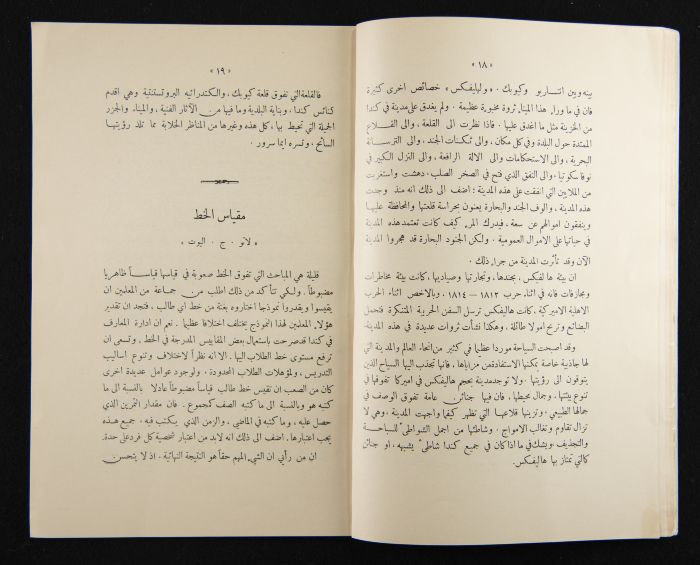 « ١٨ »
بينه وبين انتاريو وكيوبك . « ولهليفكس » خصائص اخرى كثيرة
فان في ما وراء هذا الميناء ثروة مخبوءة عظيمة . ولم يغدق على مدينة في كندا
من الخزينة مثل ما اغدق عليها . فاذا نظرت الى القلعة ، والى القلاع
الممتدة حول البلدة وفي كل مكان ، والى ثكنات الجند ، والى الترسانة
البحرية ، والى الاستحكامات والى الالة الرافعة ، والى النزل الكبير في
نوفا سكوتيا ، والى النفق الذي فتح في الصخر الصلب ، دهشت واستغربت
من الملايين التي انفقت على هذه المدينة : اضف الى ذلك انه منذ وجدت
هذه المدينة ، والوف الجند والبحارة يعنون بحراسة قلعتها والمحافظة عليها
وينفقون اموالهم عن سعة ، فيدرك المرء كيف كانت تعتمد هذه المدينة
في حياتها على الاموال العمومية . ولكن الجنود البحارة قد هجروا المدينة
الآن وقد تأثرت المدينة من جراء ذلك .
ان بيئة هاليفكس ، بجندها ، وتجارتها وصياديها ، كانت بيئة مخاطرات
ومجازفات فانه في اثناء حرب ١٨١٢ — ١٨١٤ ، وبالاخص اثناء الحرب
الاهلية الاميركية ، كانت هاليفكس ترسل السفن الحربية المتنكرة فتحمل
البضائع وتربح اموالا طائلة . وهكذا نشأت ثروات عديدة في هذه المدينة .
وقد اصبحت السياحة موردا عظيما في كثير من انحاء العالم والمدينة التي
لها جاذبية خاصة يمكنها الاستفادة من مزاياها ، فانها تجذب اليها السياح الذين
يتوقون الى رؤيتها . ولا توجد مدينة بحجم هاليفكس في اميركا تفوقها في
تنوع بيئتها ، وجمال محيطها ، فان فيها جنائن عامة تفوق الوصف في
جمالها الطبيعي ، وتزينها قلاعها التي تظهر كيفما واجهت المدينة ، وهي لا
تزال تقاوم وتغالب الامواج . وشاطئها من اجمل الشواطئ للسياحة
والتجذيف ، ويشك في ما اذا كان في جميع كندا شاطئ يشبهه ، او جنائن
كالتي تمتاز بها هاليفكس .
« ١٩ »
فالقلعة التي تفوق قلعة كيوبك ، والكتدرائيه البروتستنتية وهي اقدم
كنائس كندا ، وبناية البلدية وما فيها من الآثار الفنية ، والميناء والجزر
الجميلة التي تحيط بها ، كل هذه وغيرها من المناظر الخلابة مما تلذ رؤيتها
السائح ، وتسره ايما سرور .
مقياس الخط
« لآو . ج . اليوت »
قليلة هي المباحث التي تفوق الخط صعوبة في قياسها قياساً ظاهريا
مضبوطاً . ولكي تتأكد من ذلك اطلب من جماعة من المعلمين ان
يقيسوا ويقدروا نموذجا اختاروه بغتة من خط اي طالب ، فتجد ان تقدير
هؤلاء المعلمين لهذا النموذج يختلف اختلافا عظيما . نعم ان ادارة المعارف
في كندا قد صرحت باستعمال بعض المقاييس المدرجة في الخط . وتسعى ان
ترفع مستوى خط الطلاب اليها . الا انه نظراً لاختلاف وتنوع اساليب
التدريس ، ولمؤهلات الطلاب المحدودة . ولوجود عوامل عديدة اخرى
كان من الصعب ان تقيس خط طالب قياساً مضبوطاً عادلا بالنسبة الى ما
كتبه هو وبالنسبة الى ما كتبه الصف كمجموع . فان مقدار التمرين الذي
حصل عليه ، وما كتبه في الماضي ، والزمن الذي يكتب فيه ، جميع هذه
يجب اعتبارها . اضف الى ذلك انه لابد من اعتبار شخصية كل فرد على حدة .
ان من رأيي ان الشيء المهم حقاً هو النتيجة النهائية . اذ لا يتحسن